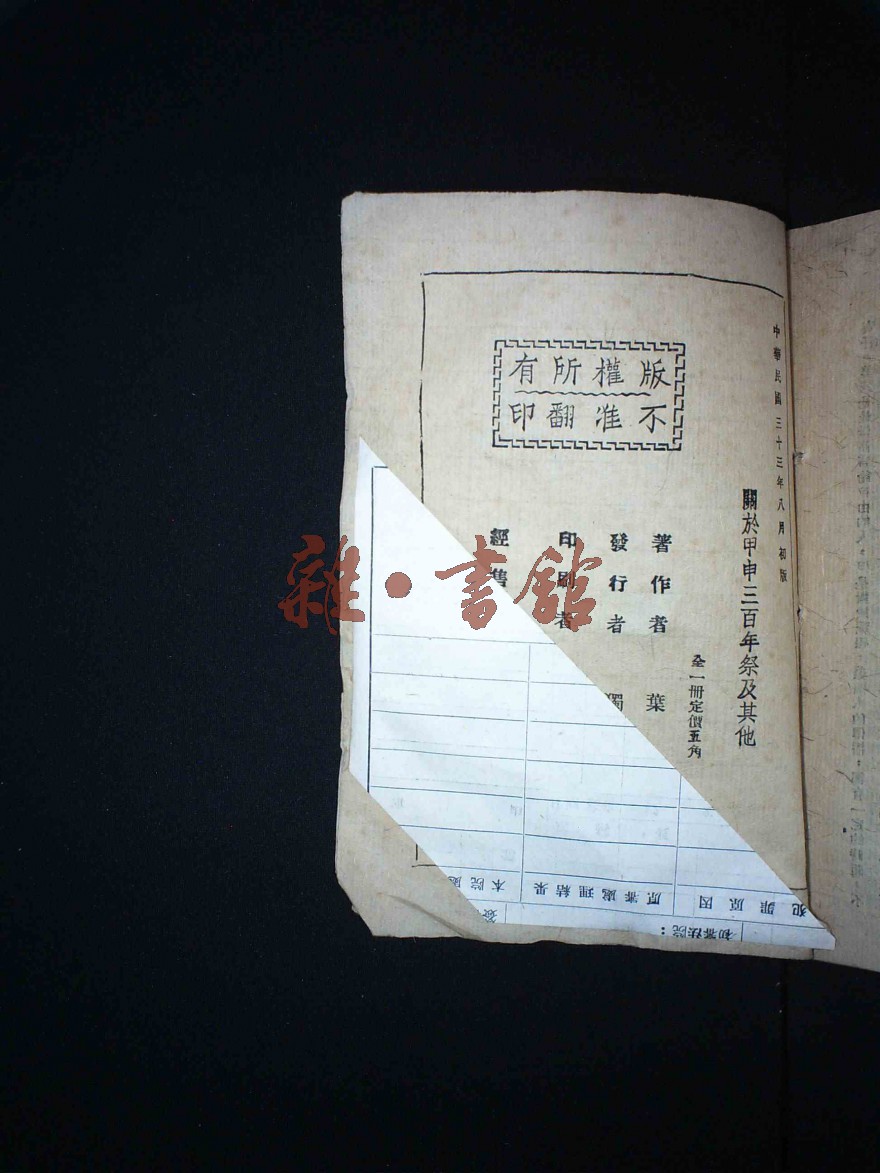 中華民國三十三年八月初版
版權所有
不准翻印
關於甲申三百年祭及其他
全一冊定價五角
著作者 葉
發行者 獨
印刷者
經售
雜·書館
犯罪原因
原審處理結果
本院處
初審法院：
簽